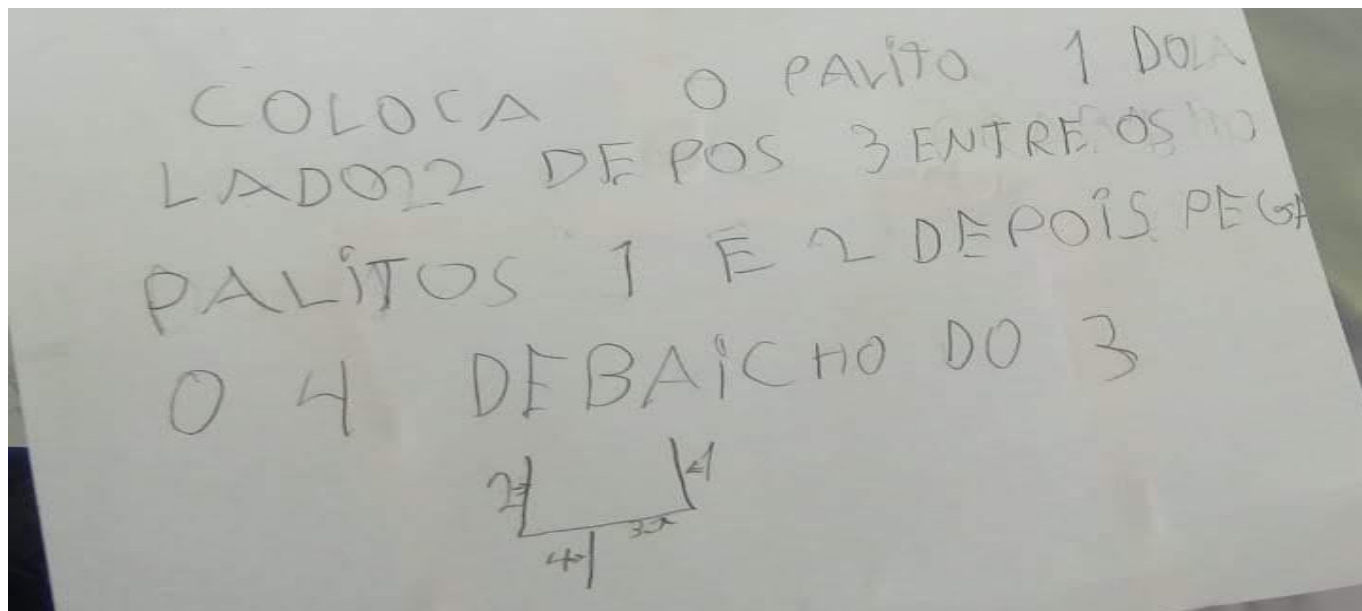 COLOCA O PALITO 1 DO
LADO 2 DEPOS 3 ENTRE OS
PALITOS 1 E 2 DEPOIS PEGA
O 4 DEBAICHO DO 3
2 1
4 3